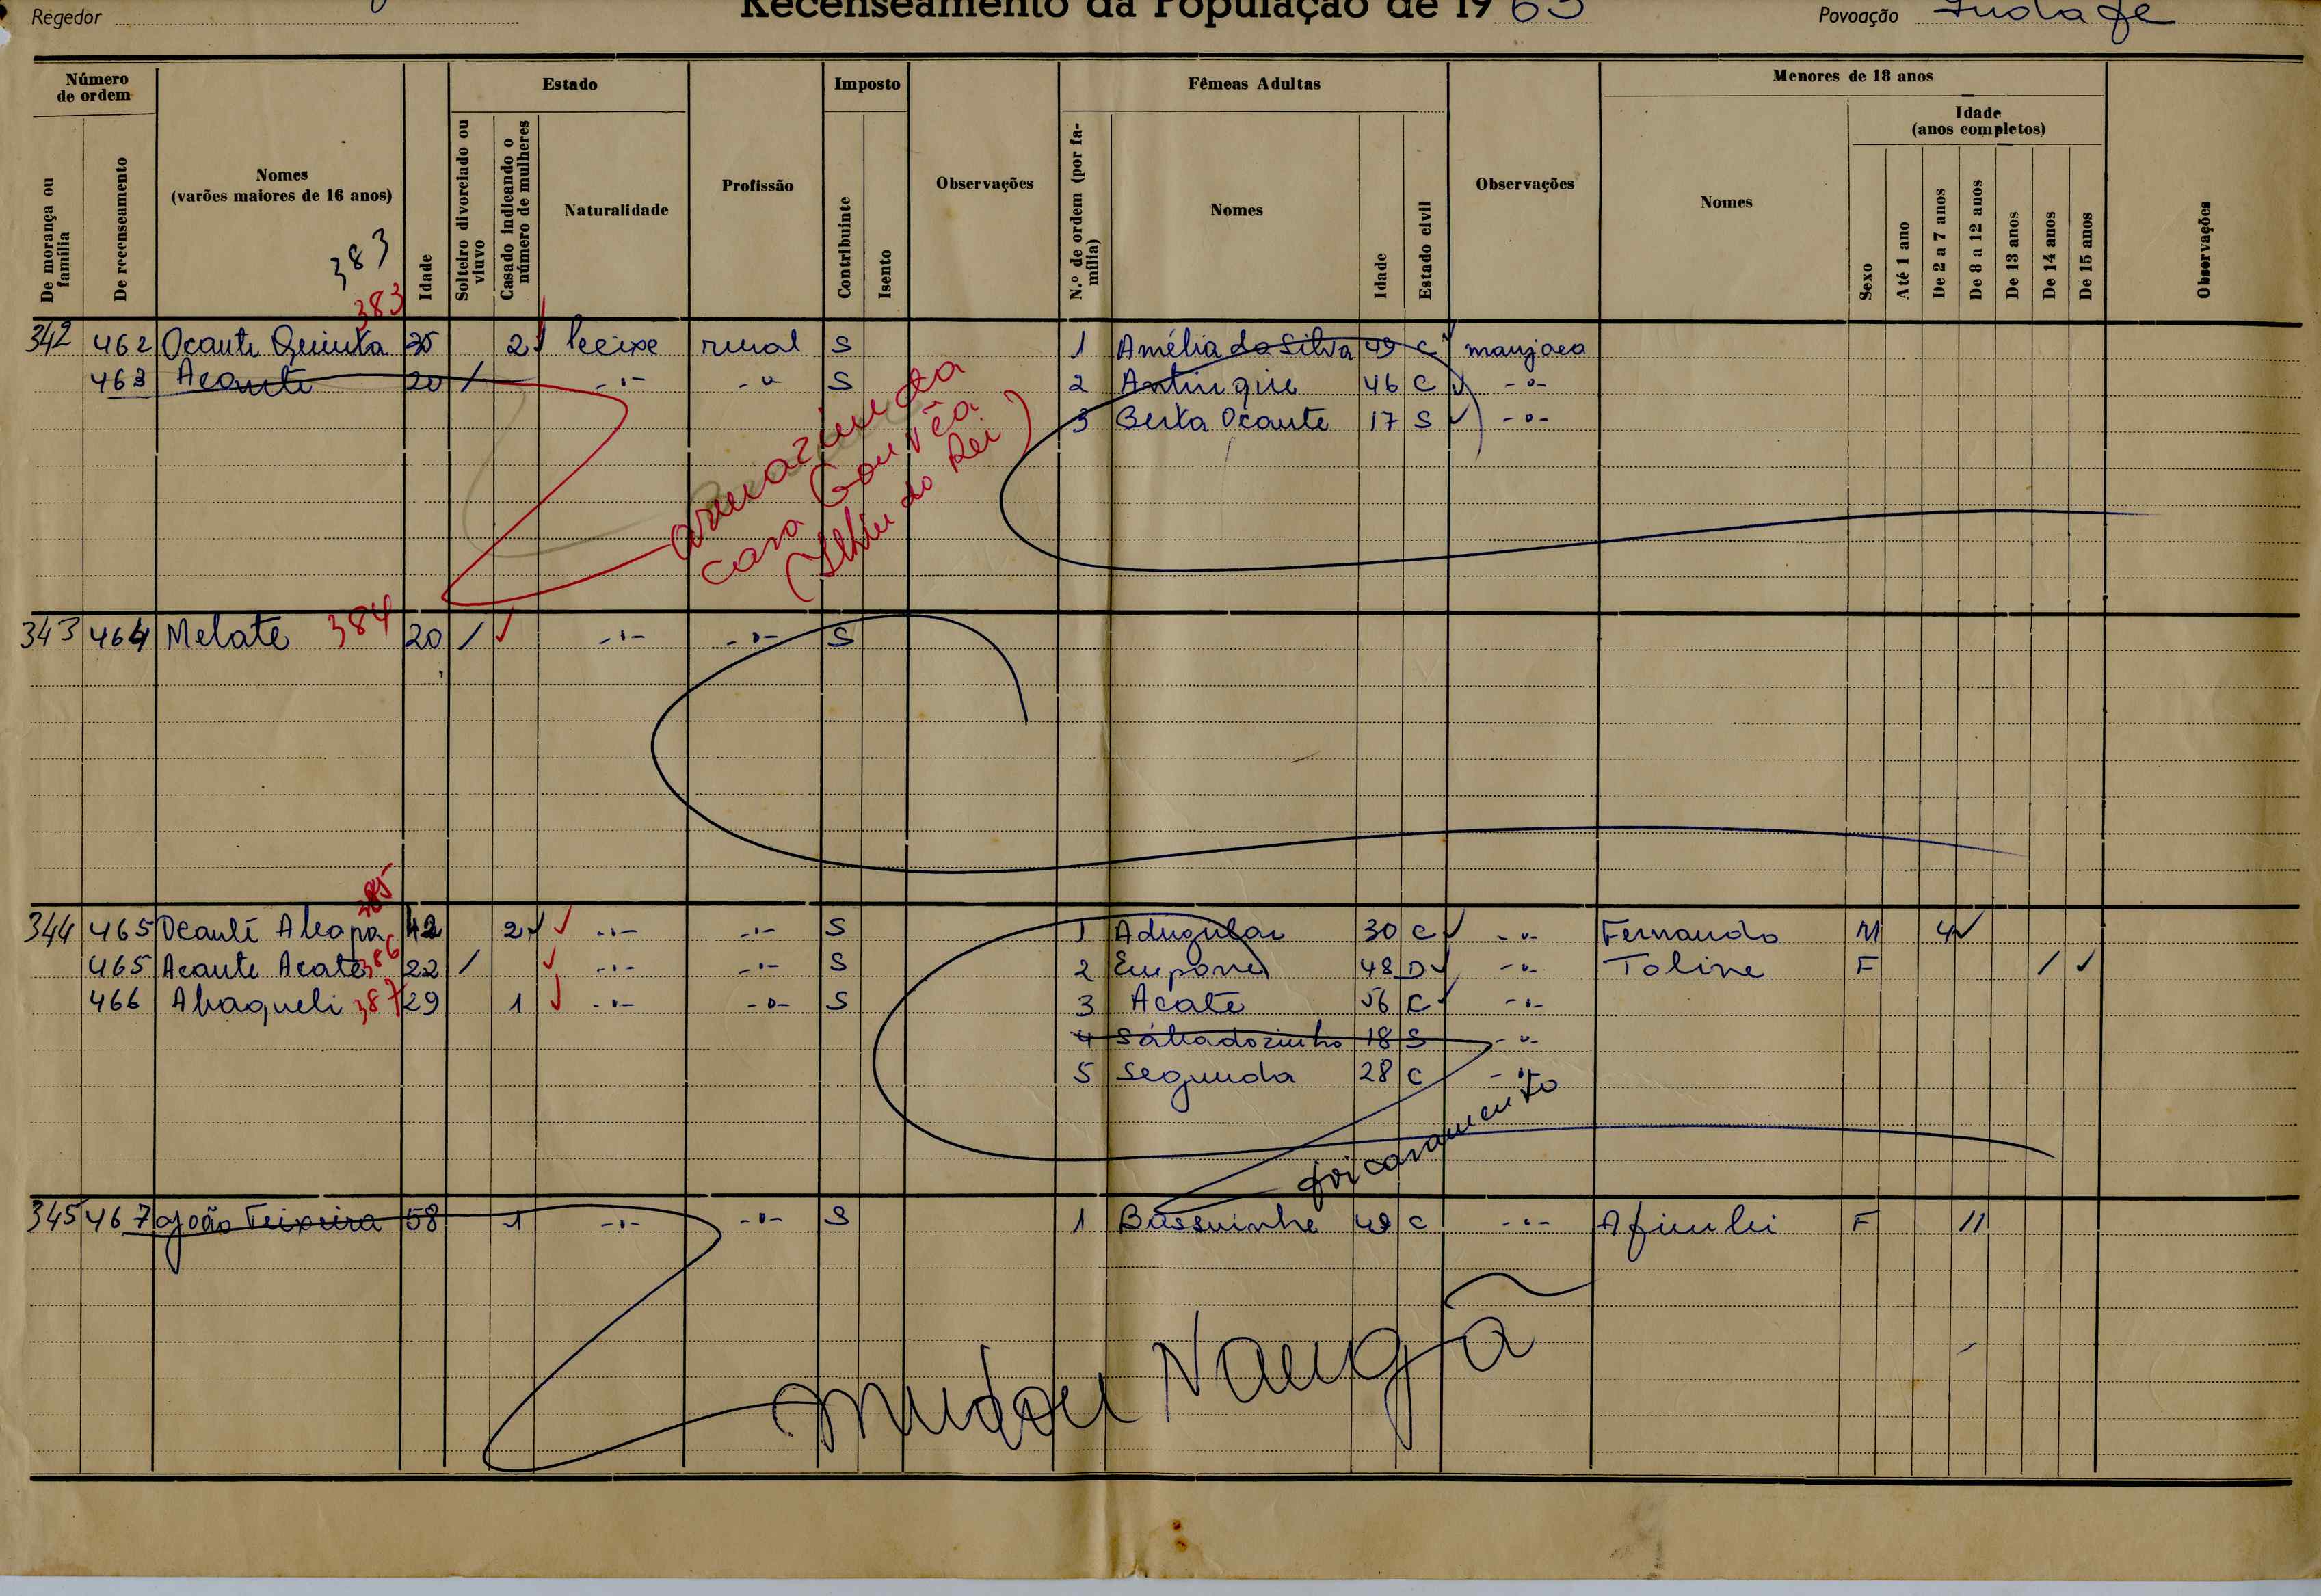 Regedor
Recenseamento da População de 1963
Povoação
Número de ordem
Estado
Imposto
Fêmeas Adultas
Menores de 18 anos
De morança ou família
De recenseamento
Nomes
(varões maiores de 16 anos)
Idade
Solteiro divorciado ou viuvo
Casado indicando o número de mulheres
Naturalidade
Profissão
Contribuinte
Isento
Observações
N.º de ordem (por família)
Nomes
Idade
Estado civil
Observações
Nomes
Sexo
Idade
(anos completos)
Até 1 ano
De 2 a 7 anos
De 8 a 12 anos
De 13 anos
De 14 anos
De 15 anos
Observações
383
383
342 462 Ocante Quinta 35 2 rural S 1 Amélia da Silva 49 C manjaca
463 Acante 20 / -"- -"- S 2 46 C -"-
3 Berta Ocante 17 S -"-
armazim da
casa Gouvêa
(Ilhéu do Rei)
343 464 Melate 384 20 / -"- -"- S
385
344 465 42 2 -"- -"- S 1 30 C -"- Fernando M 4
465 Acante Acate 386 22 / -"- -"- S 2 48 D -"- Toline F /
466 Abaqueli 387 29 1 -"- -"- S 3 Acate 56 C -"-
4 Sábadozinho 18 S -"-
5 Segunda 28 C -"-
foi casamento
345 467 João Teixeira 58 1 -"- -"- S 1 Bassuinhe 49 C -"- F 11
mudou Nangã